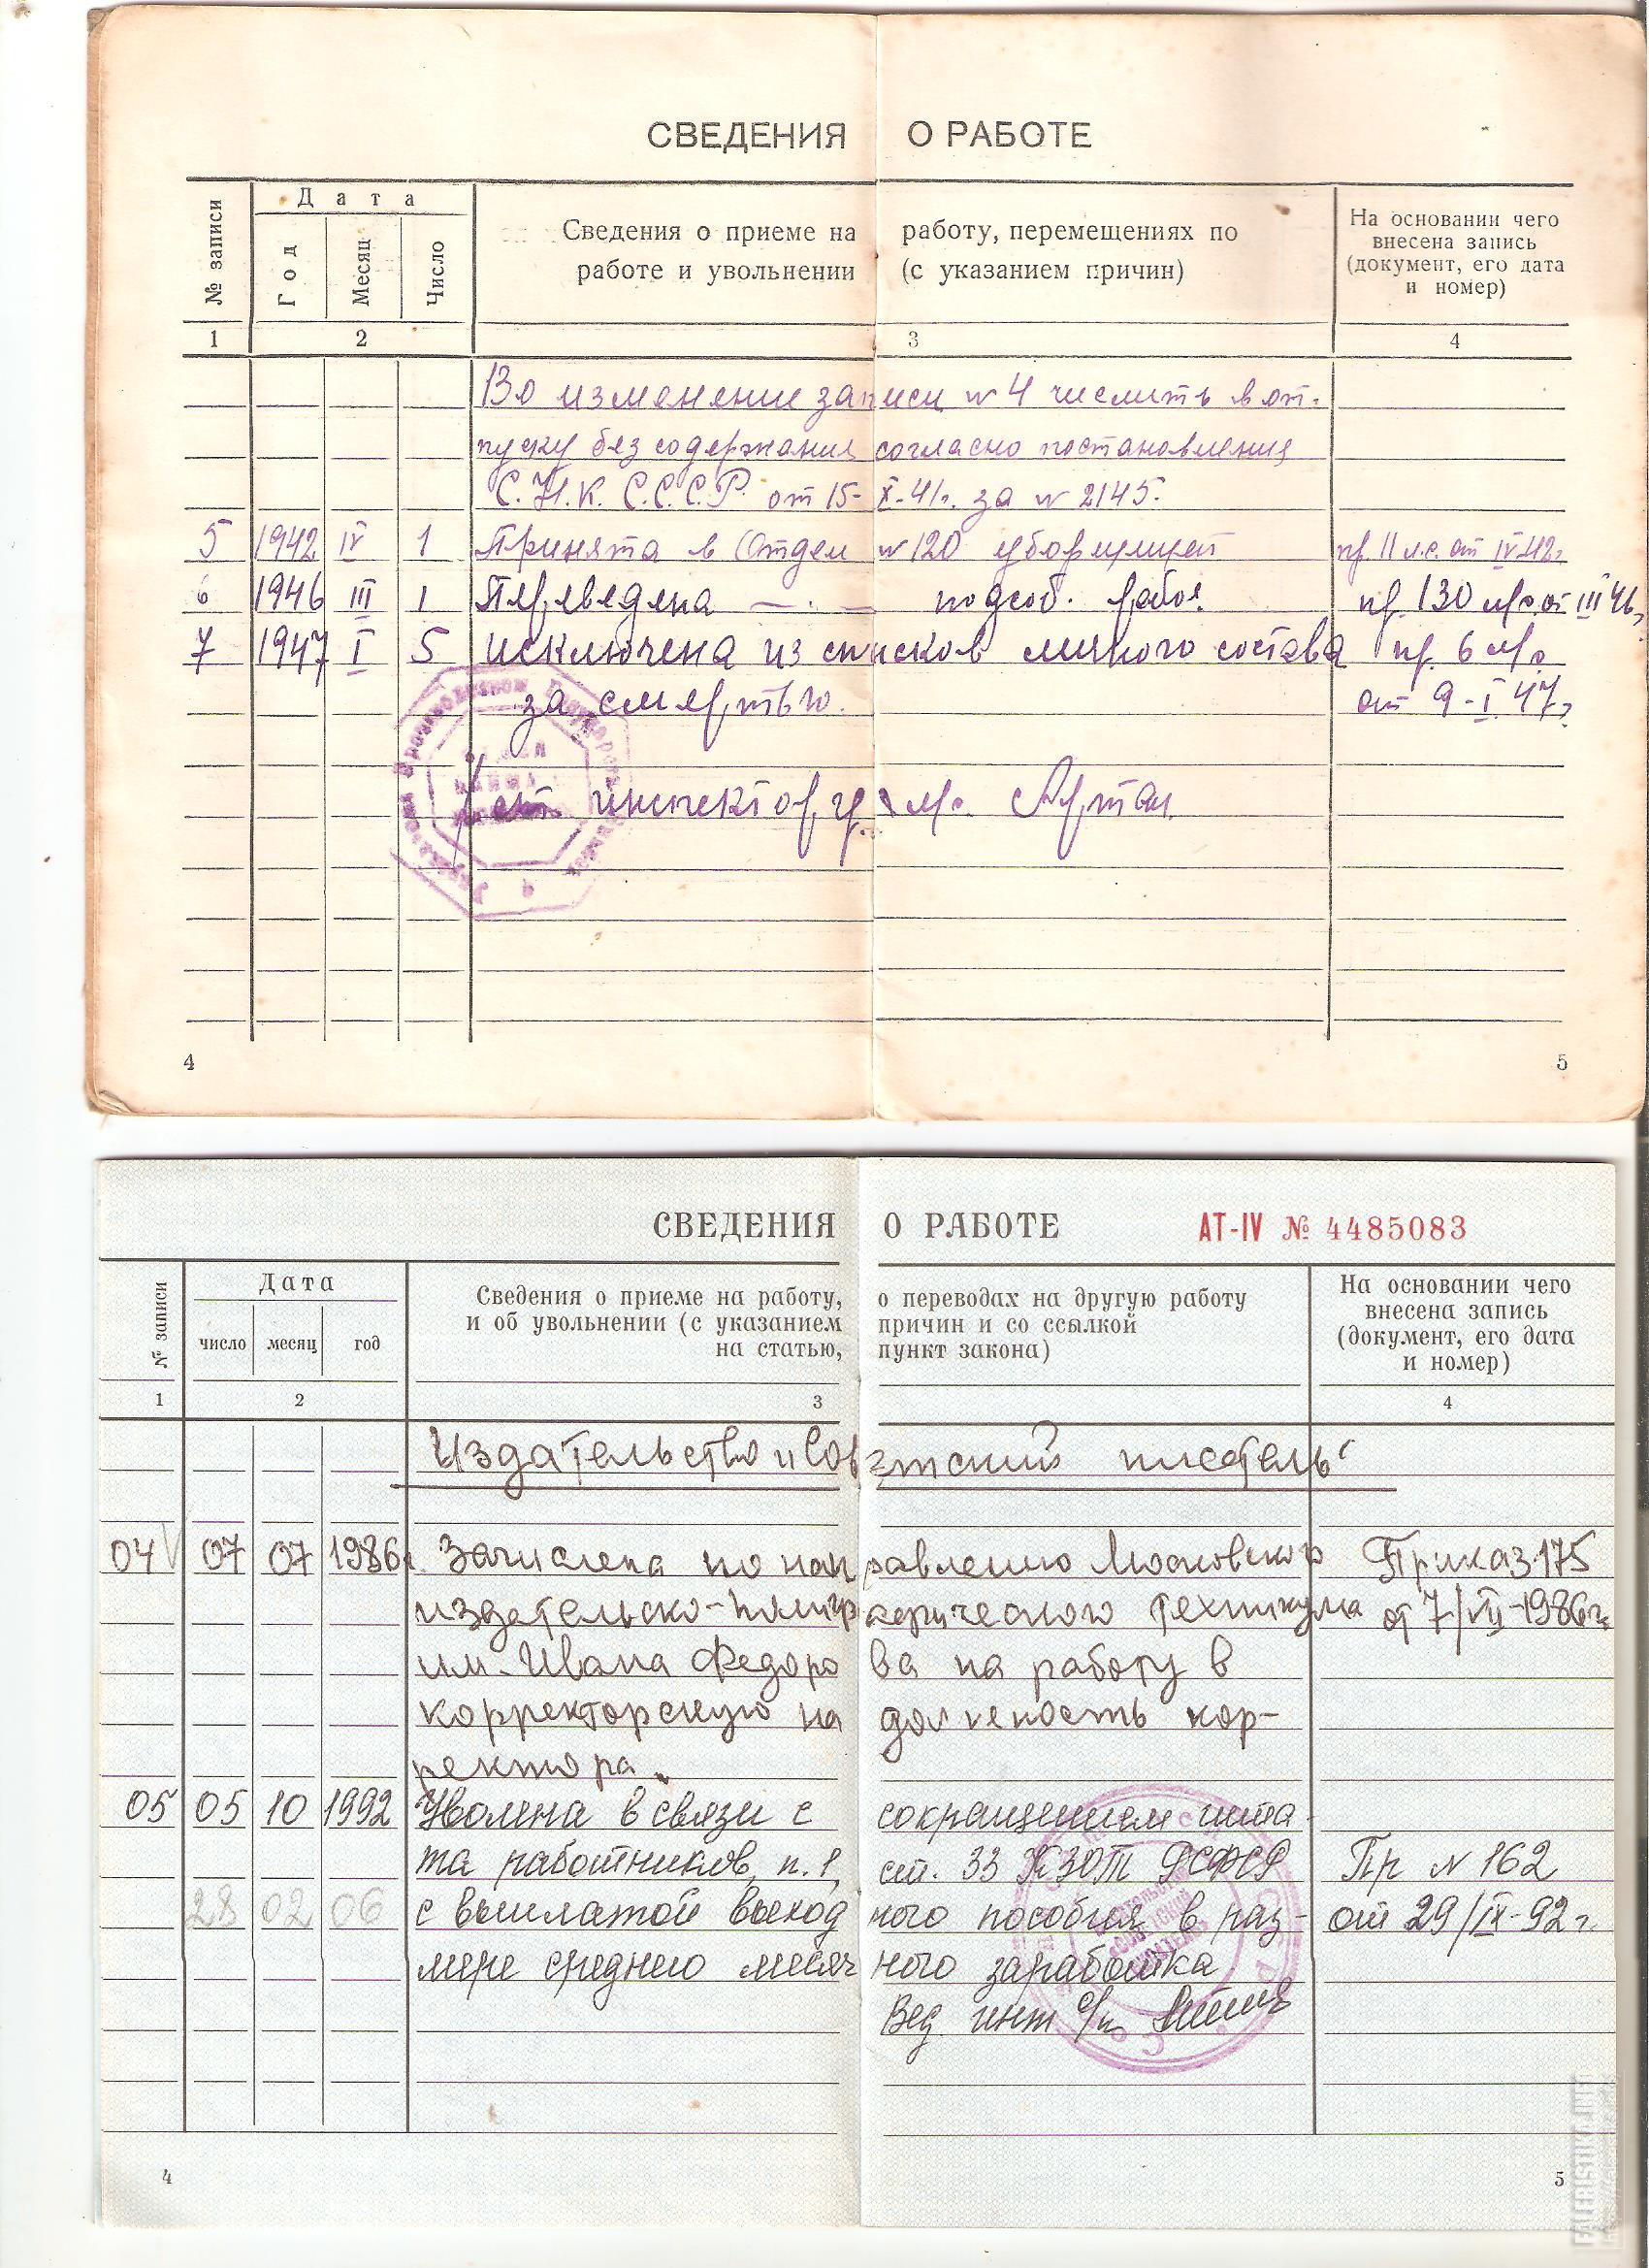 СВЕДЕНИЯ О РАБОТЕ
№ записи
Дата
Год
Месяц
Число
Сведения о приеме на работу, перемещениях по
работе и увольнении (с указанием причин)
На основании чего
внесена запись
(документ, его дата
и номер)
1 2 3 4
Во изменение записи № 4 числить в от-
пуску без содержания согласно постановления
С.Н.К. С.С.С.Р. от 15-X-41г. за № 2145.
5 1942 IV 1 Принята в Отдел № 120 уборщицей пр. 11 л.с. от IV 42г
6 1946 III 1 Переведена — " — подсоб. рабоч. пр. 130 л/с от III 46г
7 1947 I 5 исключена из списков личного состава пр. 6 л/с
за смертью. от 9-I 47г
инспектор
4 5
СВЕДЕНИЯ О РАБОТЕ АТ-IV № 4485083
№ записи
Дата
число месяц год
Сведения о приеме на работу, о переводах на другую работу
и об увольнении (с указанием причин и со ссылкой
на статью, пункт закона)
На основании чего
внесена запись
(документ, его дата
и номер)
1 2 3 4
Издательство "Советский писатель"
04 07 07 1986г. Зачислена по направлению Московского Приказ 175
издательско-полиграфического техникума от 7/VII-1986г.
им. Ивана Федорова на работу в
корректорскую на должность кор-
ректора.
05 05 10 1992 Уволена в связи с сокращением шта-
та работников, п. 1, ст. 33 КЗОТ РСФСР Пр № 162
28 02 06 с выплатой выходного пособия в раз- от 29/IX-92г.
мере среднего месячного заработка
Вед. инт о/к
4 5
FALERISTIKA.INFO